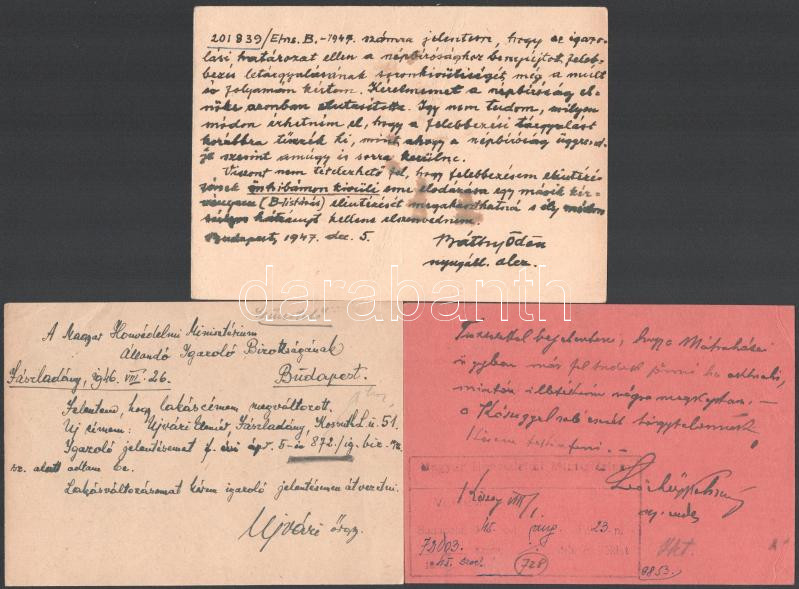 201839/Elns. B. - 1947. számra jelentem, hogy az igazo-
lási határozat ellen a népbírósághoz benyújtott felleb-
bezés letárgyalásának soronkívüliségét még a mult
hó folyamán kértem. Kérelmemet a népbíróság el-
nöke azonban elutasította. Így nem tudom, milyen
módon érhetném el, hogy a fellebbezési tárgyalást
korábbra tűzzék ki, mint ahogy a népbíróság ügyrend-
je szerint amúgy is sorra kerülne.
Viszont nem tételezhető fel, hogy fellebbezésem elinté-
zésének önhibámon kívüli elodázása egy másik kér-
vényem (B-listázás) elintézését megakadályozhatná s
hátrányt kellene elszenvednem.
Budapest, 1947. dec. 5.
Báthy Ödön
nyugáll. alez.
A Magyar Honvédelmi Minisztérium
Állandó Igazoló Bizottságának
Budapest.
Jászladány, 1946. VIII. 26.
Jelentem, hogy lakáscímem megváltozott.
Új címem: Ujvári Elemér, Jászladány, Kossuth L. u. 51.
Igazoló jelentésemet f. évi ápr. 5-én 872./ig. biz.
sz. alatt adtam be.
Lakásváltozásomat kérem igazoló jelentésemen átvezetni.
Ujvári őrgy.
Tisztelettel bejelentem, hogy a Mátraházai
ügyben már
mintán illetékeim végre megkaptam. -
a tárgytalannak
Kérem tekinteni. -
Magyar Honvédelmi Minisztérium
1945 aug. 23-n
72003.
728
9853.
darabanth